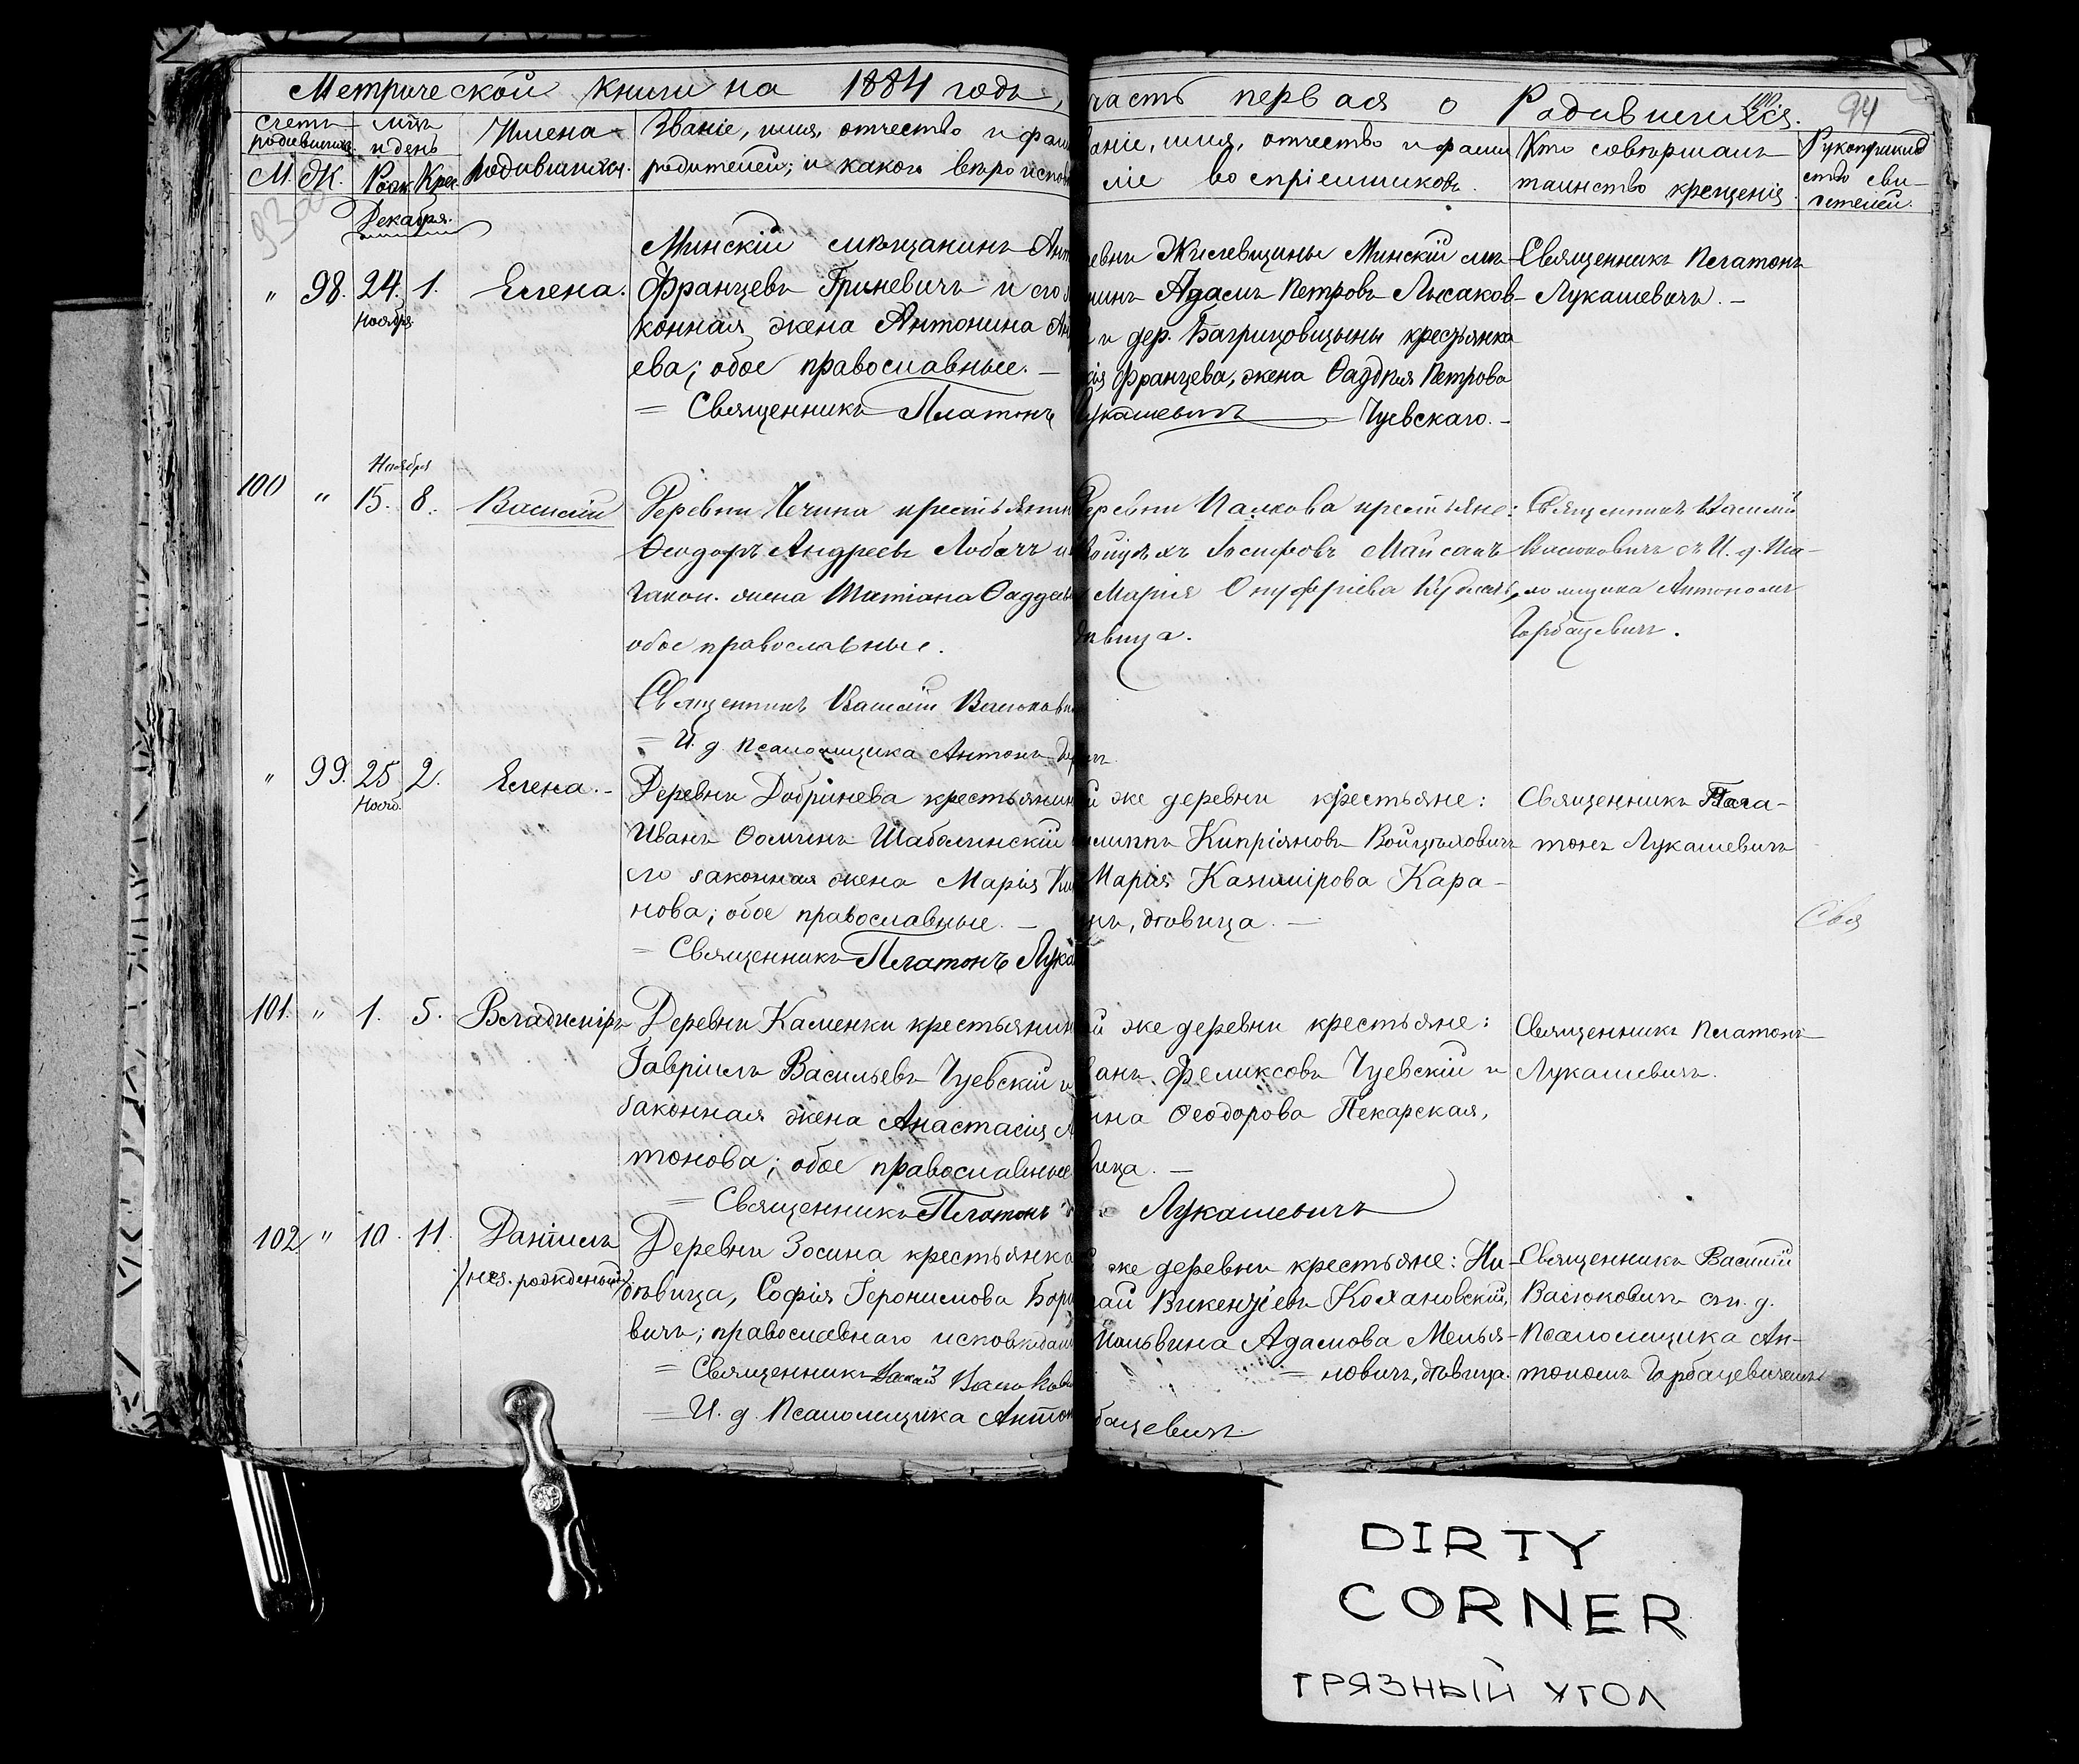 Метрической книги на 1884 годъ, часть первая о Родившихся.
94
Счетъ родившихся.
М. Ж.
мѣць и день
Рожд. Крещ.
Имена родившихся.
Званіе, имя, отчество и фам
родителей; и какого вѣроиспов
аніе, имя, отчество и фами
ліе воспріемниковъ.
Кто совершалъ
таинство крещенія
Рукоприклад
ство сви-
детелей.
Декабря.
" 98. 24. 1. Елена.
Ноября
Минскій мѣщанинъ Ант
Францевъ Гриневичъ и его з
конная жена Антонина Ан
ева; обое православные. —
= Священникъ Платонъ Лукашевичъ
евни Жилевщины Минскій мѣ-
нинъ Адамъ Петровъ Лысаков-
и дер. Багрицовщины крестьянка
ія Францева, жена Фаддея Петрова
Чуевскаго. —
Священникъ Платонъ
Лукашевичъ. —
Ноября
100 " 15. 8. Василій
Деревни Чечина крестьянин
Феодоръ Андреевъ Лобачъ и
закон. жена Татіана Фаддеев
обое православные.
Священникъ Василій Васюкови
= И. д. псаломщика Антонъ
Деревни Палкова крестьяне:
Войцѣхъ Іосифовъ Майсакъ
Марія Онуфріева
дѣвица.
Священникъ Василій
Васюковичъ съ И. д. Пса-
ломщика Антономъ
Горбацевич.
" 99. 25 2. Елена. —
Нояб.
Деревни Добринева крестьянин
Иванъ Ѳоминъ Шаболинскій
его законная жена Марія Ки
нова; обое православные. —
= Священникъ Платонъ Лука
й же деревни крестьяне:
илиппъ Кипріяновъ Войцѣховичъ
Марія Казимірова Кара-
нь, дѣвица. —
Священникъ Пла-
тонъ Лукашевичъ
Свя
101. " 1. 5. Владиміръ
Деревни Каменки крестьянин
Гавріилъ Васильевъ Чуевскій и
законная жена Анастасія А
тонова; обое православные
= Священникъ Платонъ Лукашевичъ
й же деревни крестьяне:
анъ Феликсовъ Чуевскій и
нна Ѳеодорова Пекарская,
вица. —
Священникъ Платонъ
Лукашевичъ.
102 " 10. 11. Даніилъ
/нез. рожденый/
Деревни Зосина крестьянка
дѣвица, Софія Іеронимова Бор
вичъ; православнаго исповѣдан
= Священникъ Василій Васюкови
= И. д. Псаломщика Антон бацевичъ.
же деревни крестьяне: Ни-
лай Викентіевъ Кохановскій,
Мальвина Адамова Мелья-
= новичъ, дѣвица.
Священникъ Василій
Васюковичъ съ и. д.
Псаломщика Ан-
тономъ Горбацевичемъ
DIRTY
CORNER
ГРЯЗНЫЙ УГОЛ